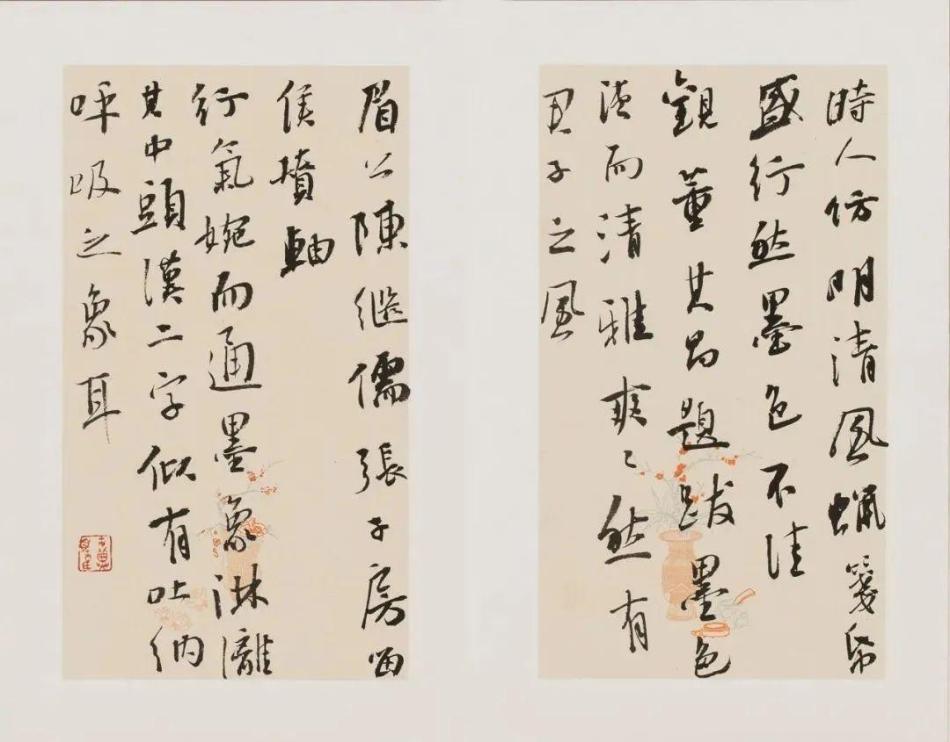 時人仿明清風蠟箋帋
盛行然墨色不佳
觀董其昌題跋墨色
淡而清雅爽〻然有
君子之風
眉公陳繼儒張子房留
侯墳軸
行氣婉而通墨象淋漓
其中頭漢二字似有吐納
呼吸之象耳